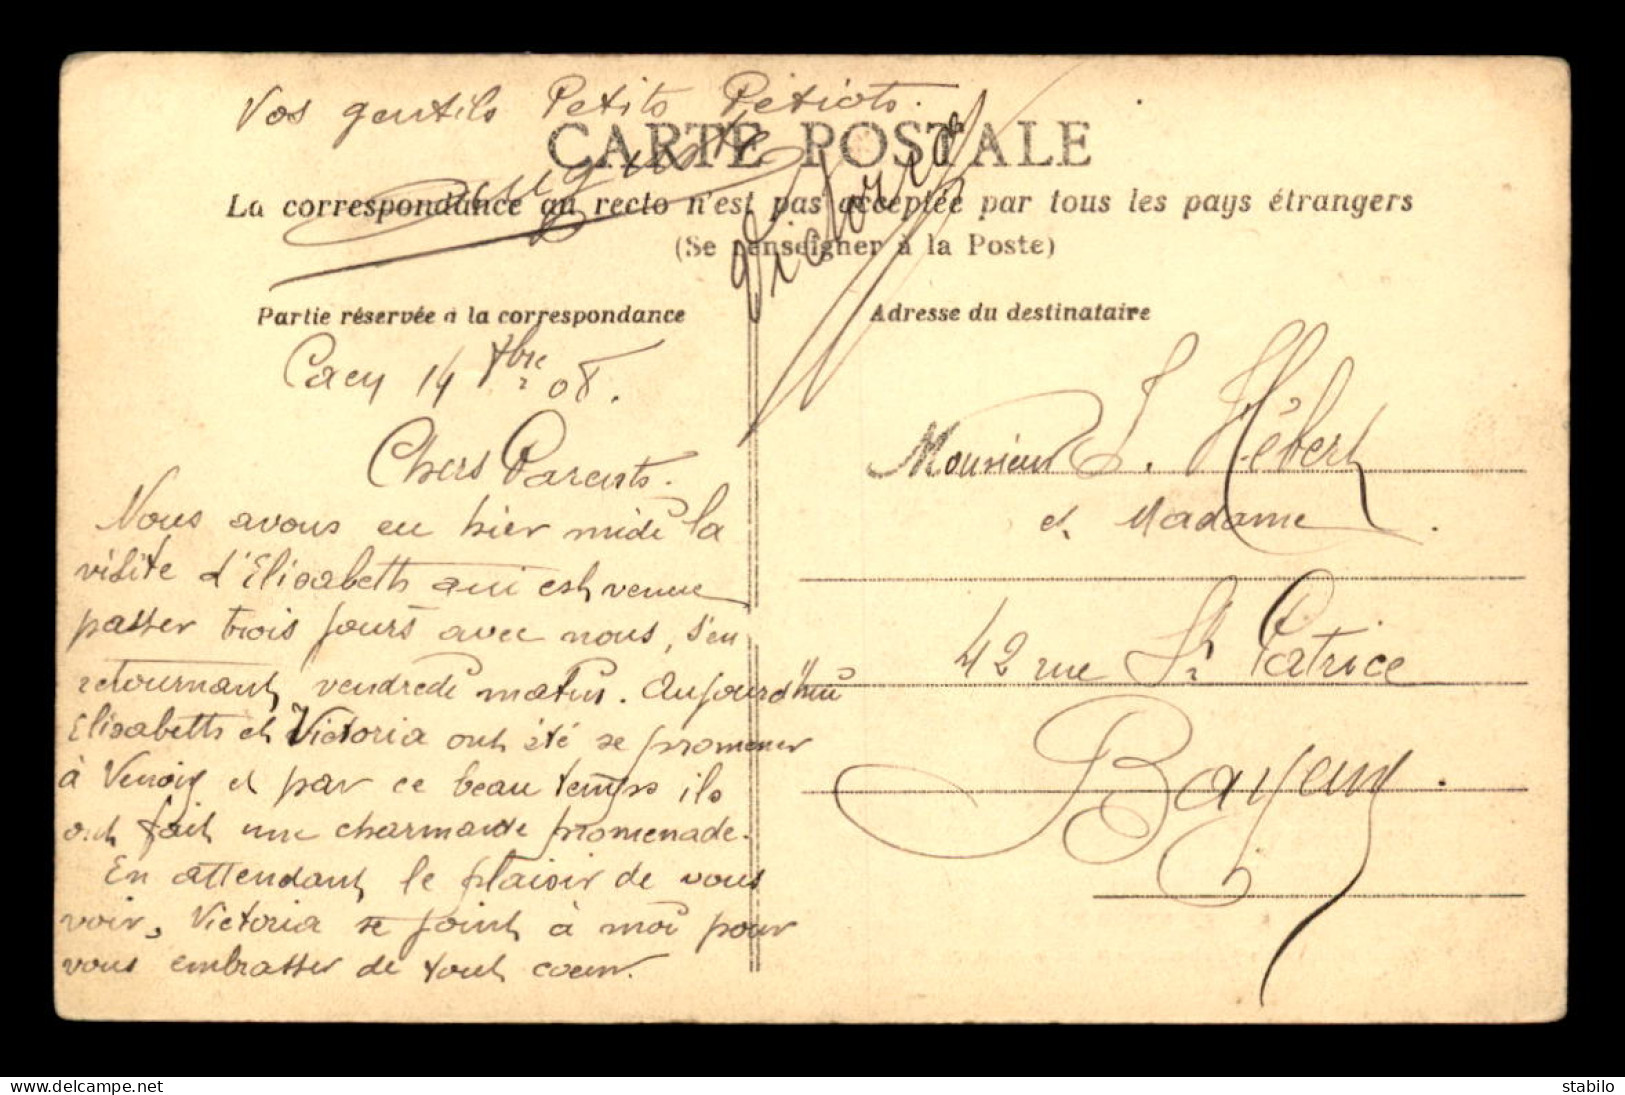 Vos gentils Petits Petiots.
Auguste
Victoria
CARTE POSTALE
La correspondance au recto n'est pas acceptée par tous les pays étrangers
(Se renseigner à la Poste)
Partie réservée à la correspondance
Caen 14 Xbre 08.
Chers Parents.
Nous avons eu hier midi la
visite d'Elisabeth qui est venue
passer trois jours avec nous, s'en
retournant vendredi matin. Aujourd'hui
Elisabeth et Victoria ont été se promener
à Venoix et par ce beau temps ils
ont fait une charmante promenade.
En attendant le plaisir de vous
voir, Victoria se joint à moi pour
vous embrasser de tout coeur.
Adresse du destinataire
Monsieur J. Hébert
et Madame.
42 rue St Patrice
Bayeux.
delcampe.net
stabilo